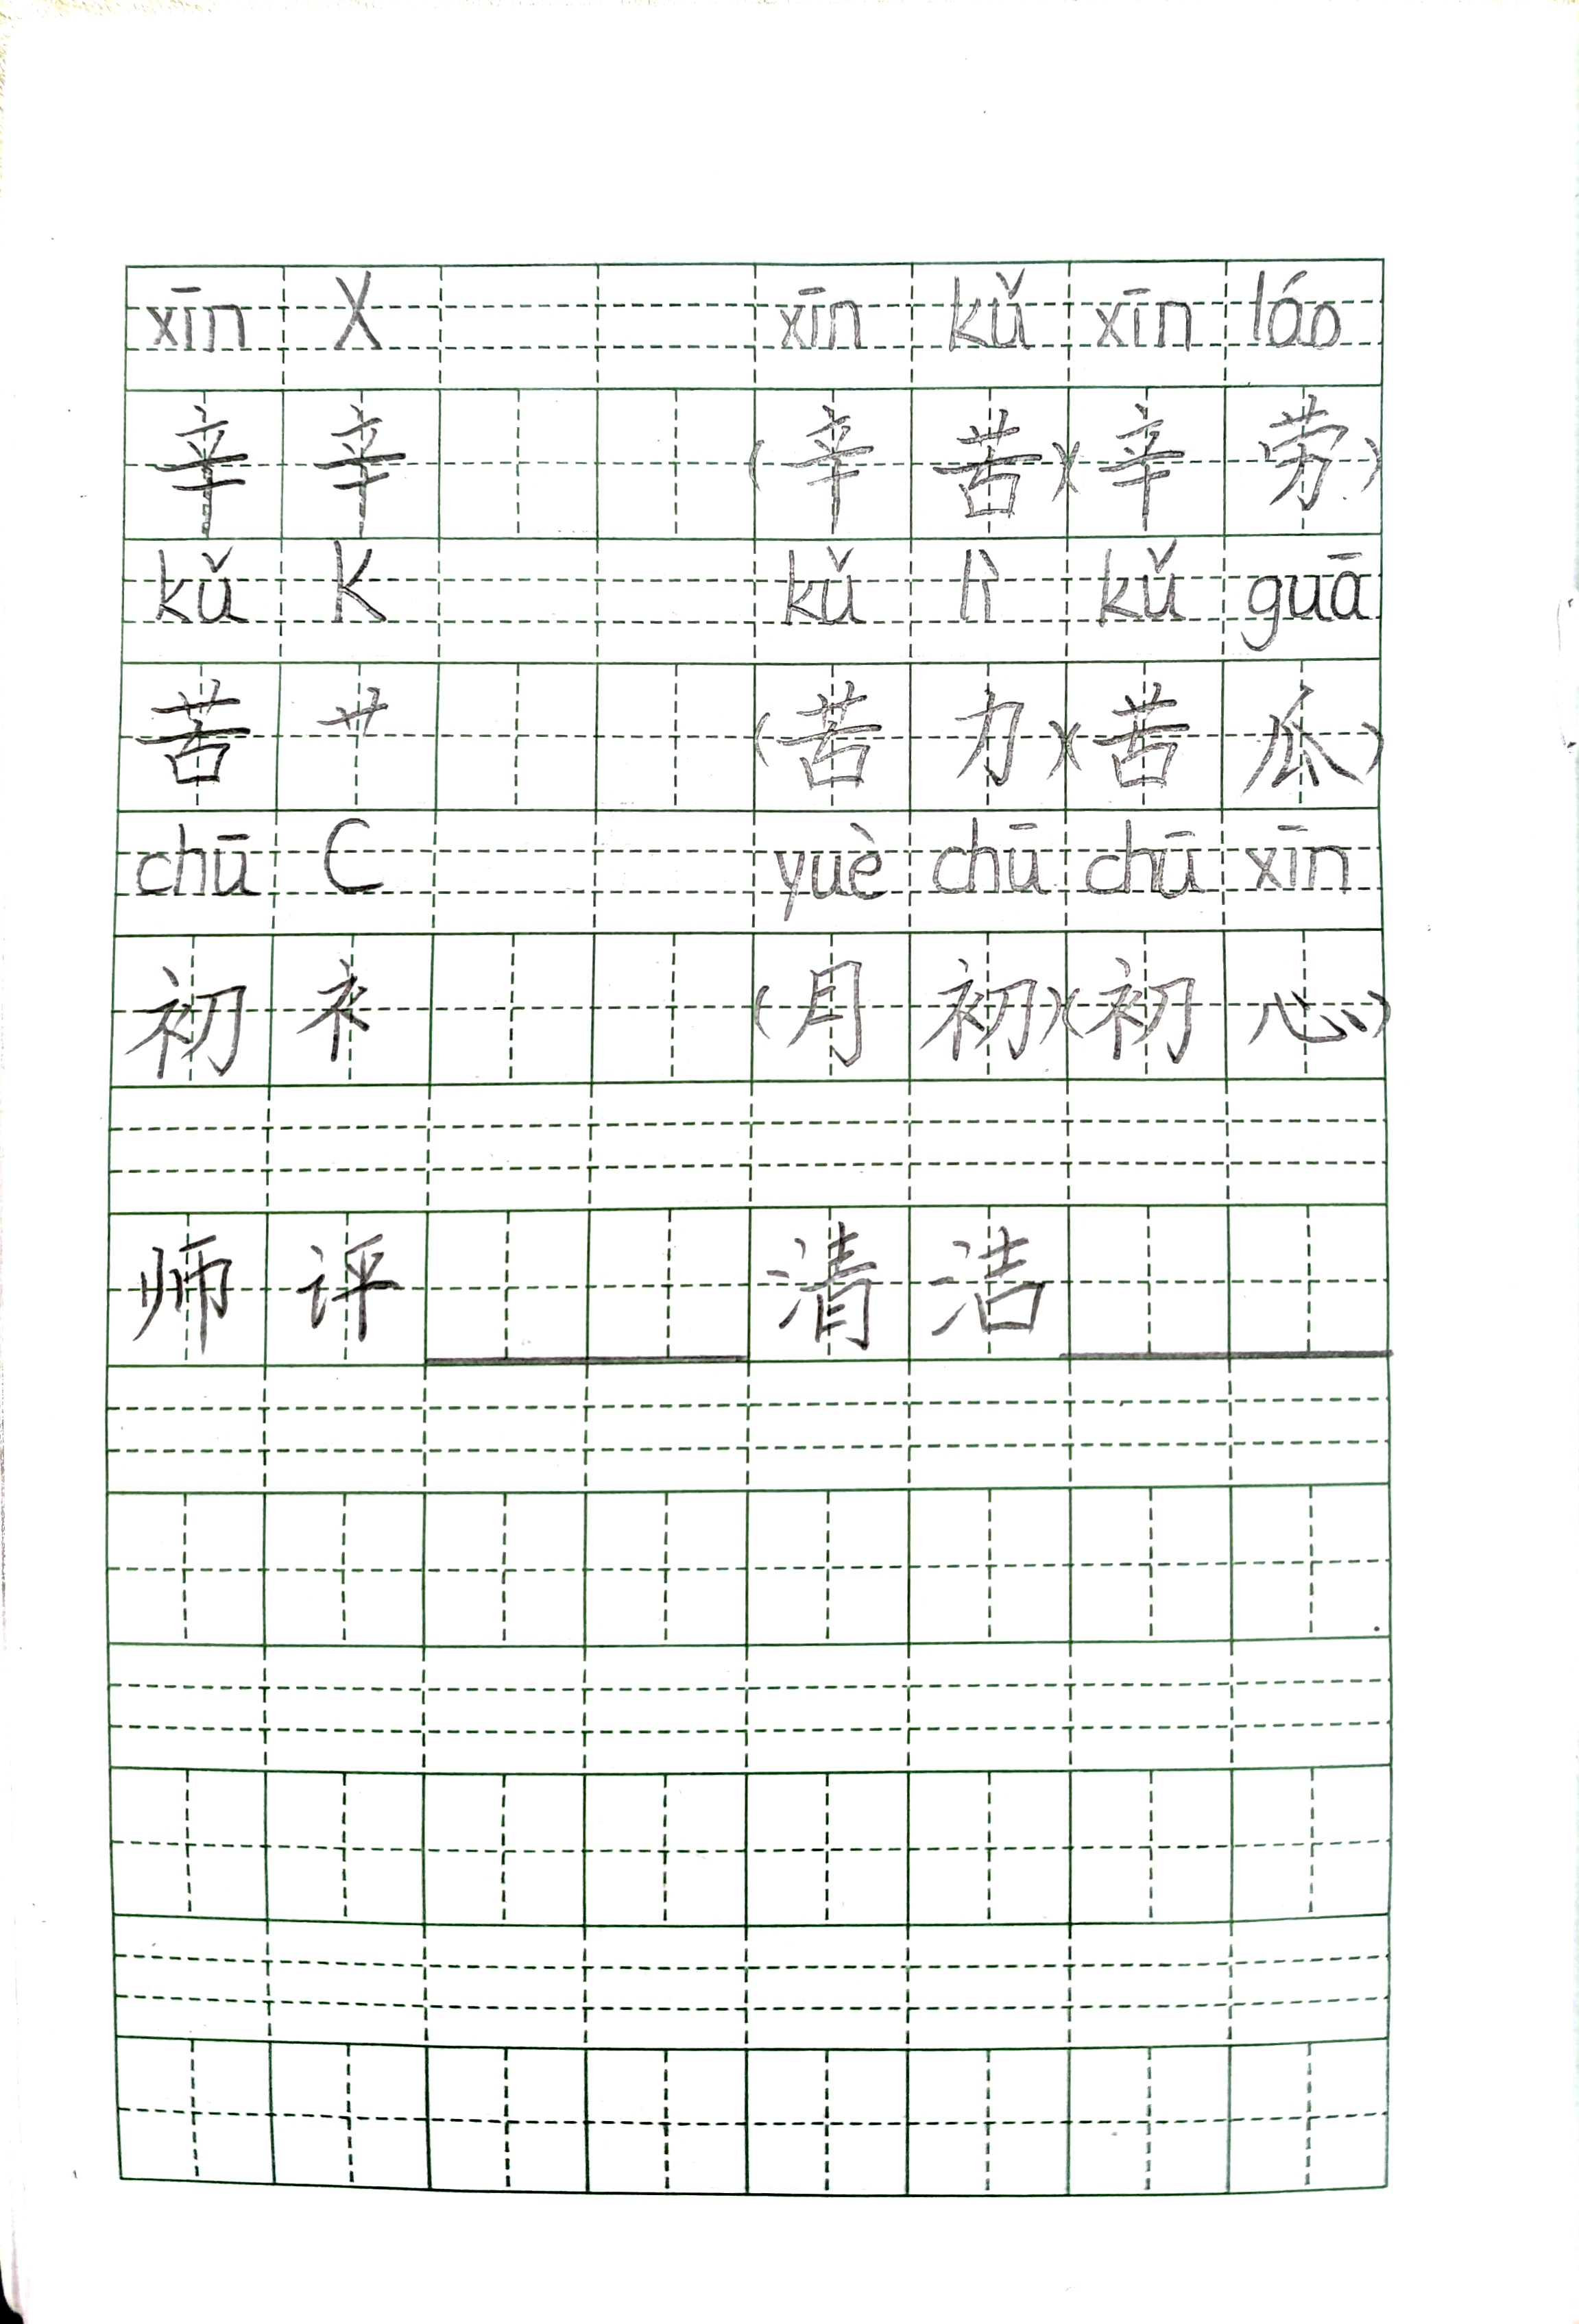 xīn X xīn kǔ xīn láo
辛 辛 (辛 苦)(辛 劳)
kǔ K kǔ lì kǔ guā
苦 艹 (苦 力)(苦 瓜)
chū C yuè chū chū xīn
初 衤 (月 初)(初 心)
师 评 清 洁